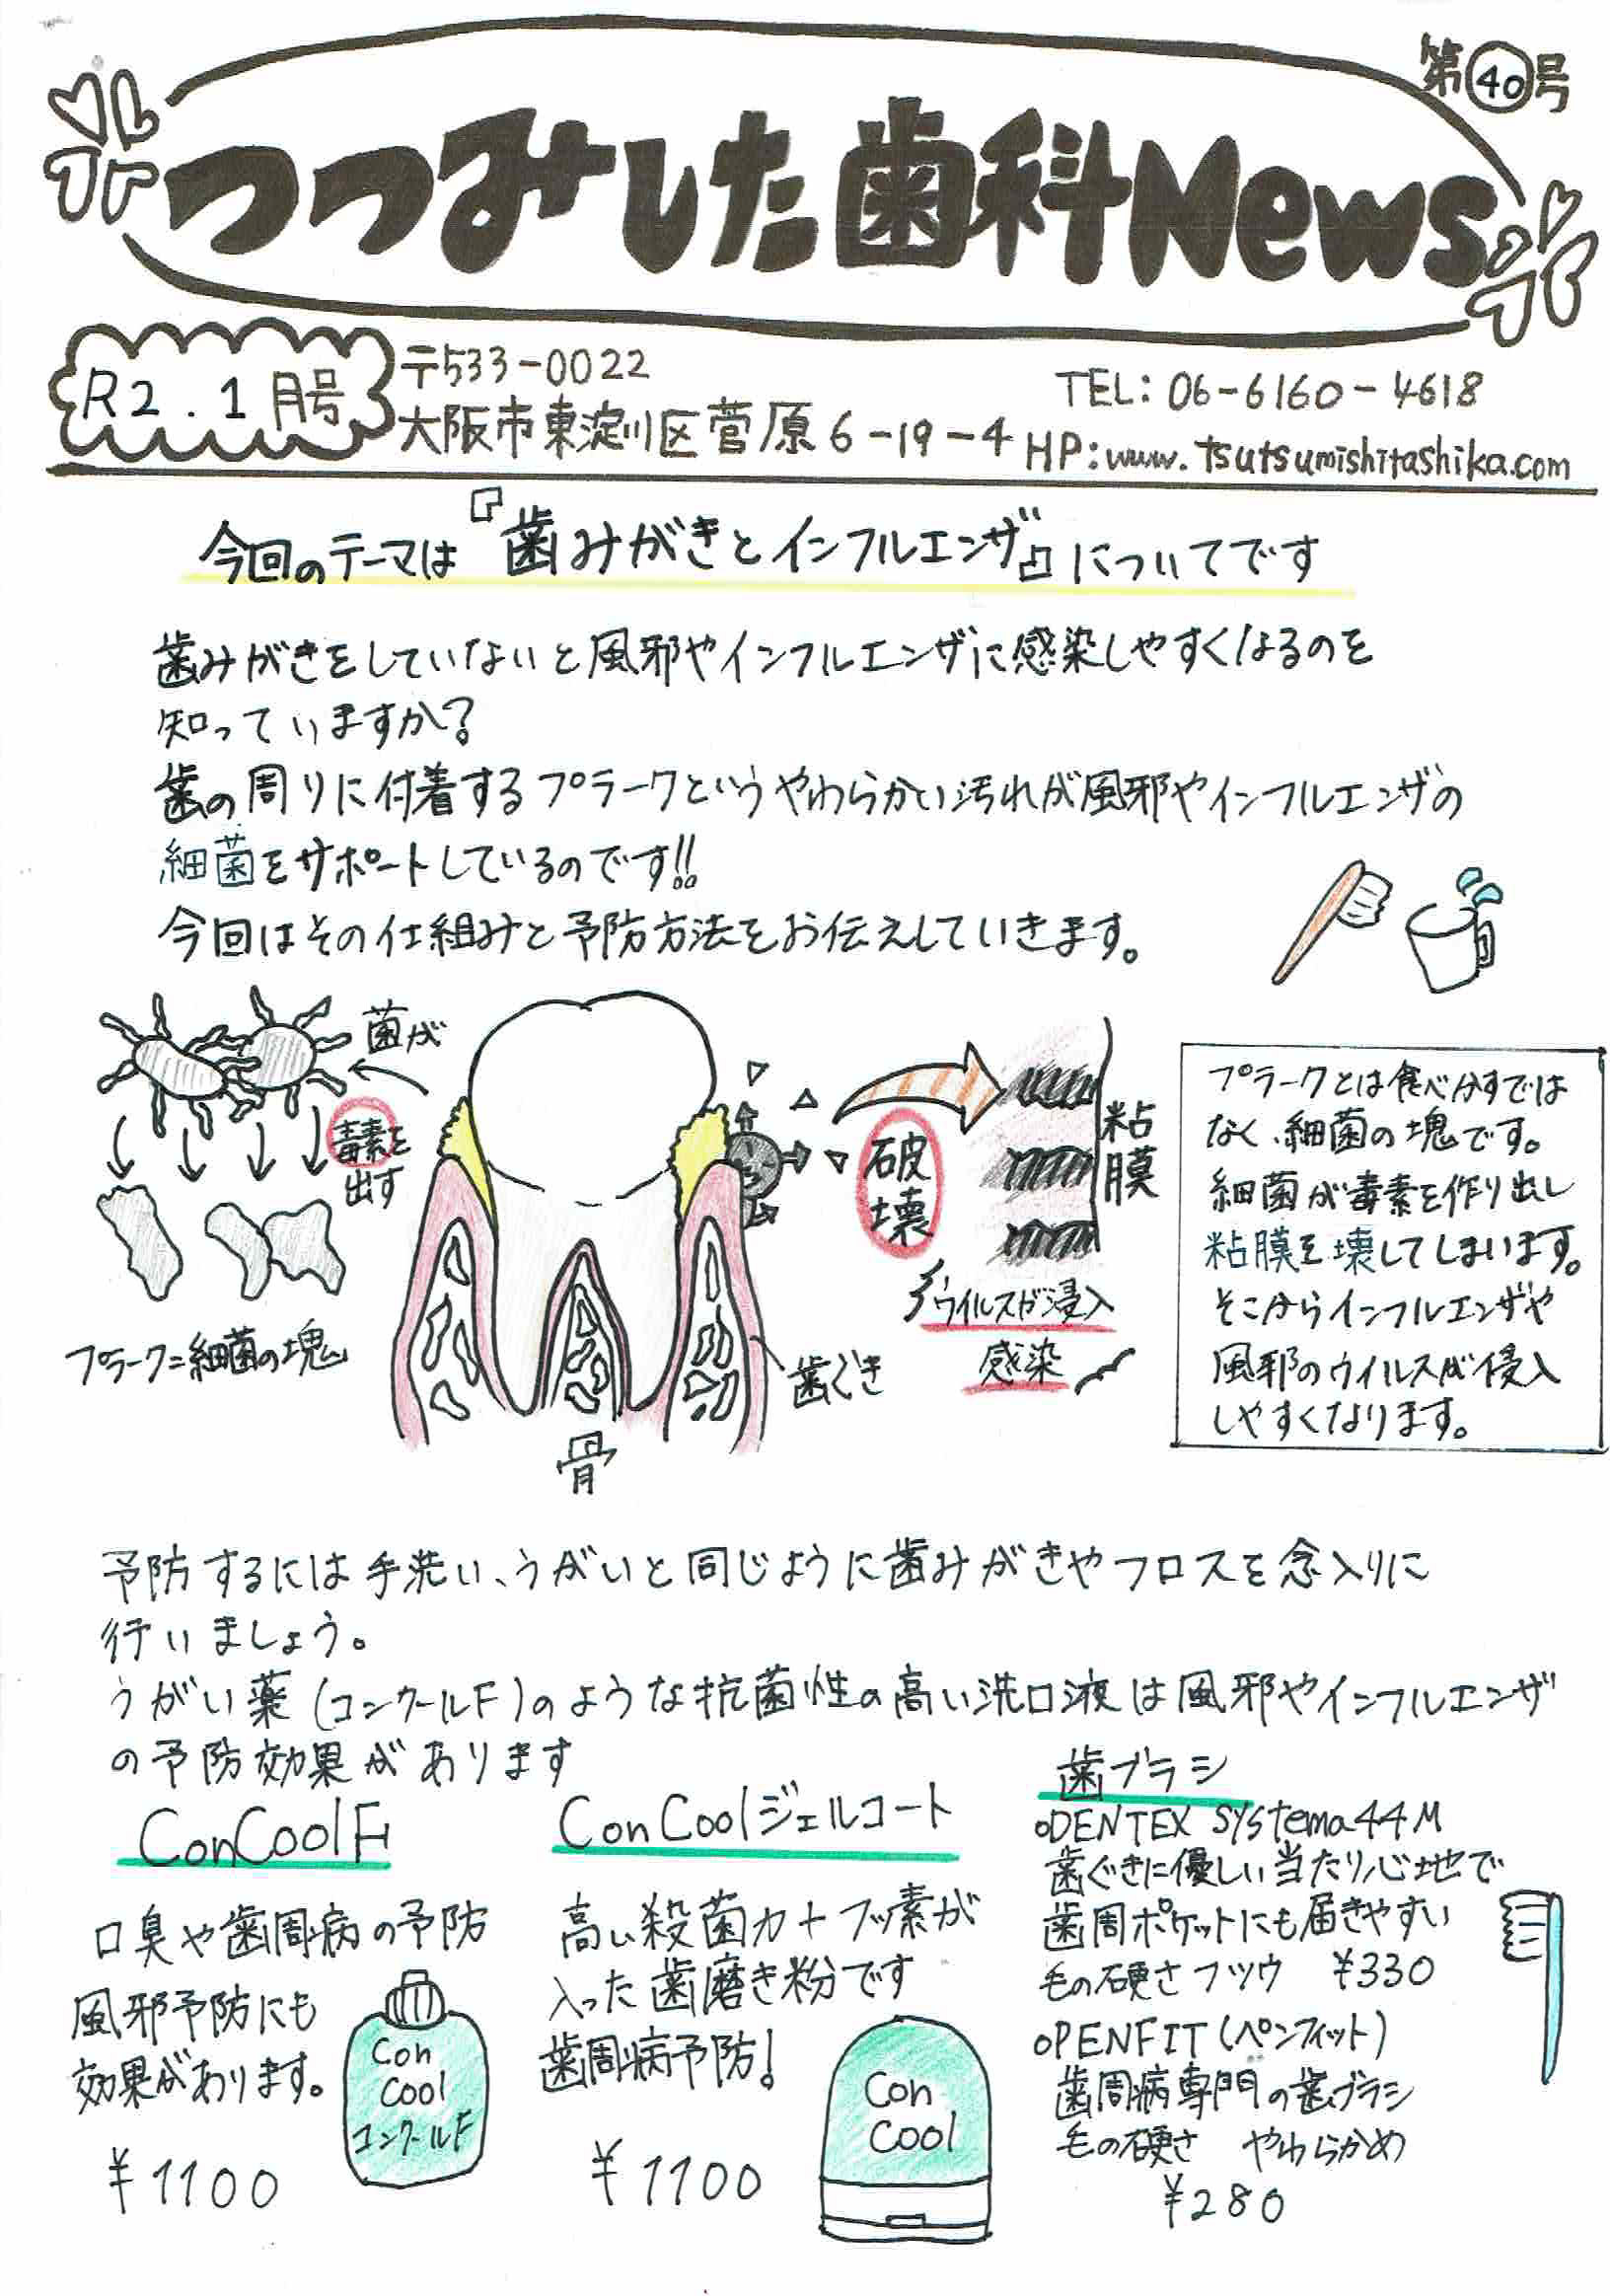 第40号
つつみした歯科News
R2.1月号
〒533-0022
大阪市東淀川区菅原6-19-4
TEL:06-6160-4618
HP:www.tsutsumishitashika.com
今回のテーマは『歯みがきとインフルエンザ』についてです
歯みがきをしていないと風邪やインフルエンザに感染しやすくなるのを
知っていますか?
歯の周りに付着するプラークというやわらかい汚れが風邪やインフルエンザの
細菌をサポートしているのです!!
今回はその仕組みと予防方法をお伝えしていきます。
菌が
毒素を
出す
プラーク=細菌の塊
骨
歯ぐき
破壊
粘膜
ウイルスが浸入
感染
プラークとは食べカスでは
なく、細菌の塊です。
細菌が毒素を作り出し
粘膜を壊してしまいます。
そこからインフルエンザや
風邪のウイルスが侵入
しやすくなります。
予防するには手洗い、うがいと同じように歯みがきやフロスを念入りに
行いましょう。
うがい薬(コンクールF)のような抗菌性の高い洗口液は風邪やインフルエンザ
の予防効果があります
ConCoolF
口臭や歯周病の予防
風邪予防にも
効果があります。
¥1100
Con
Cool
コンクールF
ConCoolジェルコート
高い殺菌力+フッ素が
入った歯磨き粉です
歯周病予防!
¥1100
Con
Cool
歯ブラシ
○DENTEX systema44M
歯ぐきに優しい当たり心地で
歯周ポケットにも届きやすい
毛の硬さフツウ ¥330
○PENFIT(ペンフィット)
歯周病専門の歯ブラシ
毛の硬さ やわらかめ
¥280